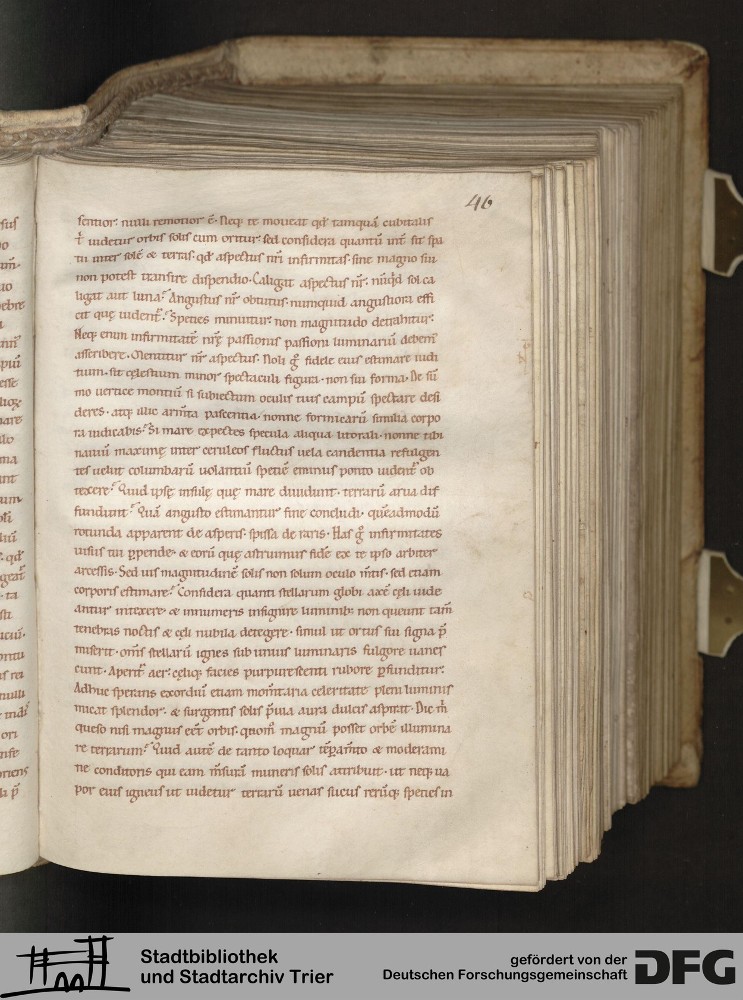 46
sentior. nulli remotior ē. Neq; te moueat qđ tamquā cubitalis
t̄ uidetur orbis solis cum oritur. sed considera quantū int̄ sit spa
tii inter solē & terras. qđ aspectus nr̄i infirmitas sine magno sui
non potest transire dispendio. Caligat aspectus nr̄. nūqd sol ca
ligat aut luna? Angustus nr̄ obtutus. numquid angustiora effi
cit quę uident̄? Species minuitur. non magnitudo detrahitur.
Neq; enim infirmitatē nr̄ę passionis passioni luminariū debem
asscribere. Mentitur nr̄ aspectus. Noli g̊ fidele eius estimare iudi
tium. sit cęlestium minor spectaculi figura. non sui forma. De sū
mo uertice montiū si subiectum oculis tuis campū spectare desi
deres. atq; illic arm̄ta pascentia. nonne formicarū similia corpo
ra iudicabis? Si mare expectes specula aliqua litorali. nonne tibi
nauiū maximę inter ceruleos fluctus uela candentia refulgen
tes uelut columbarū uolantiū spetiē eminus ponto uident̄ ob
texere? Quid ipsę insulę quę mare diuidunt. terrarū arua dis
fundunt? Quā angusto estimantur fine concludi. quēadmodū
rotunda apparent de asperis. spissa de raris. Has g̊ infirmitates
uisus tui ꝑpende. & eorū quę astruimus fidē ex te ipso arbiter
arcessis. Sed uis magnitudinē solis non solum oculo m̄tis. sed etiam
corporis estimare? Considera quanti stellarum globi axē cęli uide
antur intexere. & innumeris insignire luminib; non queunt tam̄
tenebras noctis & cęli nubila detegere. simul ut ortus sui signa p̄
miserit. om̄s stellarū ignes sub unius luminaris fulgore uanes
cunt. Aperit̄ aer. cęliq; facies purpurescenti rubore ꝑfunditur.
Adhuc sperans exordiū etiam mom̄taria celeritate pleni luminis
micat splendor. & surgentis solis p̄uia aura dulcis aspirat. Dic m̄
queso nisi magnus eēt orbis. quom̄ magnū posset orbē illumina
re terrarum? Quid autē de tanto loquar tēꝑam̄to & moderami
ne conditoris qui eam m̄surā muneris solis attribuit. ut neq; ua
por eius igneus ut uidetur terrarū uenas sucus rerūq; species in
Stadtbibliothek
und Stadtarchiv Trier
gefördert von der
Deutschen Forschungsgemeinschaft
DFG